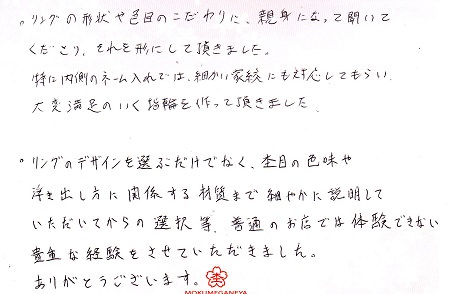 。リングの形状や色目のこだわりに、親身になって聞いて
くださり、それを形にして頂きました。
特に内側のネーム入れでは、細かい家紋にも対応してもらい、
大変満足のいく指輪を作って頂きました。
。リングのデザインを選ぶだけでなく、杢目の色味や
浮き出し方に関係する材質まで細やかに説明して
いただいてからの選択等、普通のお店では体験できない
貴重な経験をさせていただきました。
ありがとうございます。
MOKUMEGANEYA